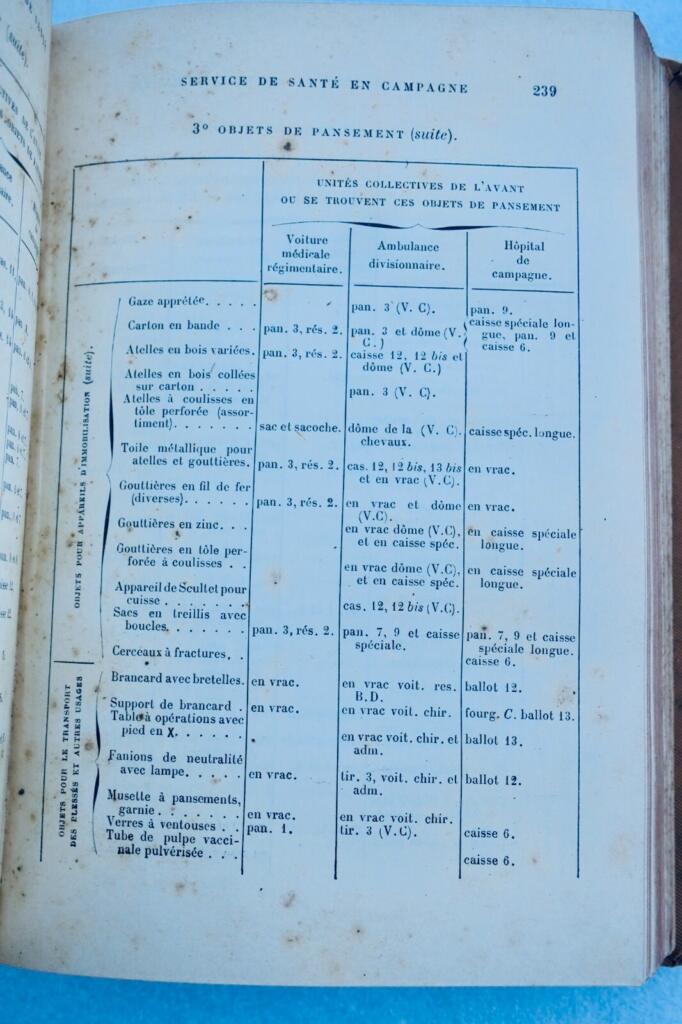 SERVICE DE SANTÉ EN CAMPAGNE 239
3° OBJETS DE PANSEMENT (suite).
UNITÉS COLLECTIVES DE L'AVANT
OU SE TROUVENT CES OBJETS DE PANSEMENT
Voiture
médicale
régimentaire.
Ambulance
divisionnaire.
Hôpital
de
campagne.
OBJETS POUR APPAREILS D'IMMOBILISATION (suite).
Gaze apprêtée. . . . . pan. 3 (V. C). pan. 9.
Carton en bande . . . pan. 3, rés. 2. pan. 3 et dôme (V. C.) caisse spéciale lon-
gue, pan. 9 et
caisse 6.
Atelles en bois variées. pan. 3, rés. 2. caisse 12, 12 bis et
dôme (V. C.)
Atelles en bois collées
sur carton . . . . . pan. 3 (V. C).
Atelles à coulisses en
tôle perforée (assor-
timent). . . . . . . sac et sacoche. dôme de la (V. C). caisse spéc. longue.
chevaux.
Toile métallique pour
atelles et gouttières. pan. 3, rés. 2. cas. 12, 12 bis, 13 bis en vrac.
et en vrac (V.C).
Gouttières en fil de fer
(diverses). . . . . . pan. 3, rés. 2. en vrac et dôme en vrac.
(V.C).
Gouttières en zinc. . . en vrac dôme (V.C), en caisse spéciale
et en caisse spéc. longue.
Gouttières en tôle per-
forée à coulisses . . en vrac dôme (V.C), en caisse spéciale
et en caisse spéc. longue.
Appareil de Scultet pour
cuisse . . . . . . . cas. 12, 12 bis (V.C).
Sacs en treillis avec
boucles. . . . . . . pan. 3, rés. 2. pan. 7, 9 et caisse pan. 7, 9 et caisse
spéciale. spéciale longue.
Cerceaux à fractures. . caisse 6.
OBJETS POUR LE TRANSPORT
DES PLESSÉS ET AUTRES USAGES
Brancard avec bretelles. en vrac. en vrac voit. res. ballot 12.
B.D.
Support de brancard . en vrac. en vrac voit. chir. fourg. C. ballot 13.
Table à opérations avec
pied en X. . . . . . en vrac voit. chir. et ballot 13.
adm.
Fanions de neutralité
avec lampe. . . . . en vrac. tir. 3, voit. chir. et ballot 12.
adm.
Musette à pansements,
garnie . . . . . . . en vrac. en vrac voit. chir.
Verres à ventouses . . pan. 1. tir. 3 (V.C). caisse 6.
Tube de pulpe vacci-
nale pulvérisée . . . caisse 6.